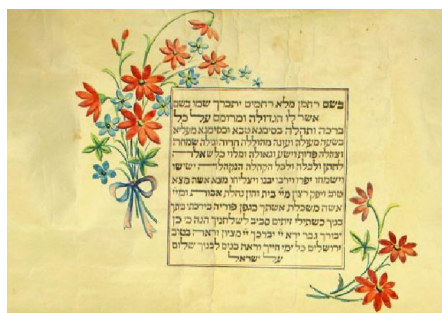 בשם רחמן מלא רחמים יתברך שמו בשם
אשר לו הגדולה ומרומם על כל
ברכה ותהלה בסימנא טבא ובסימנא מעליא
בשעה מעולה ועונה מהוללה חדוה וגילה שמחה
וצהלה פדות וישע וגאולה ומלוי כל שאלה
לחתן ולכלה ולכל הקהלה הנקהלה ישישו
וישמחו יפרו וירבו יבנו ויצליחו מצא אשה מצא
טוב ויפק רצון מיי בית והון נחלת אבות ומיי
אשה משכלת אשתך כגפן פוריה בירכתי ביתך
בניך כשתילי זיתים סביב לשלחניך הנה כי כן
יבורך גבר ירא יי יברכך יי מציון וראה בטוב
ירושלים כל ימי חייך וראה בנים לבניך שלום
על ישראל